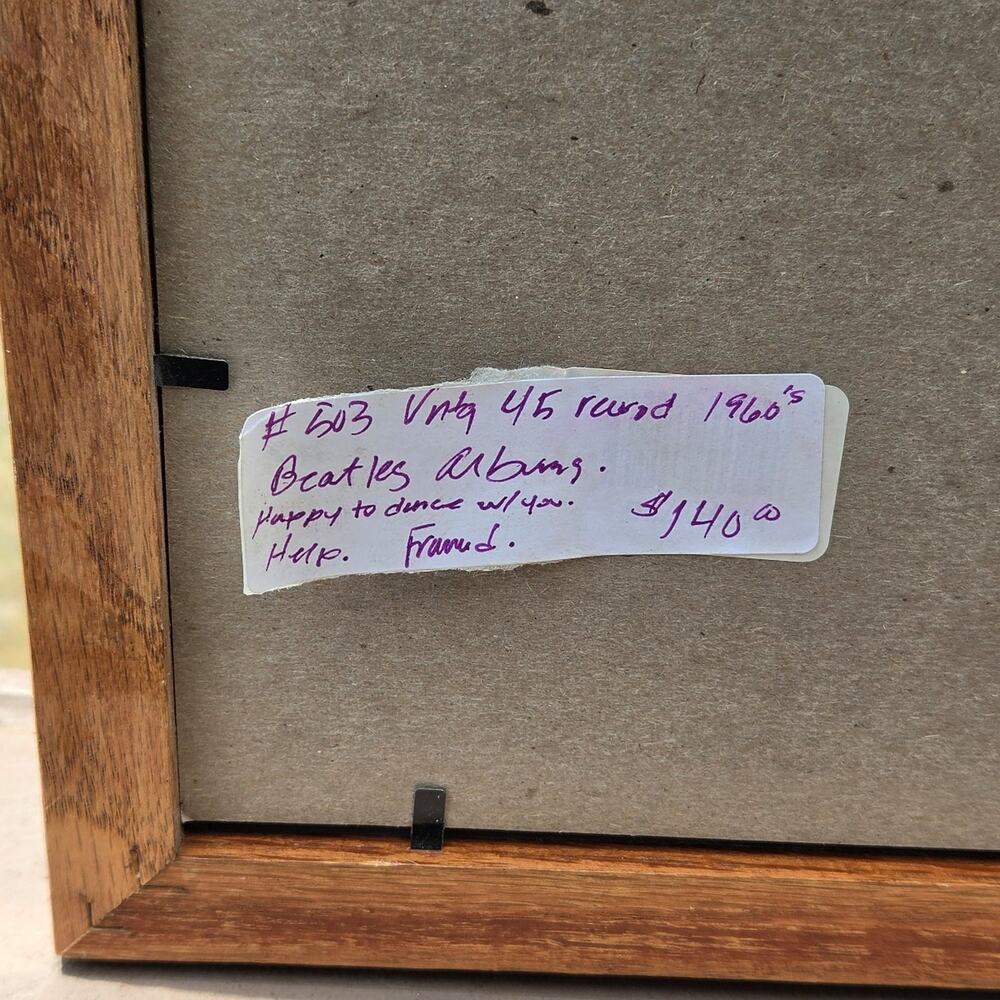 # 503 Vntg 45 record 1960's
Beatles Albums.
Happy to dance w/you.
Help. Framed. $140 00